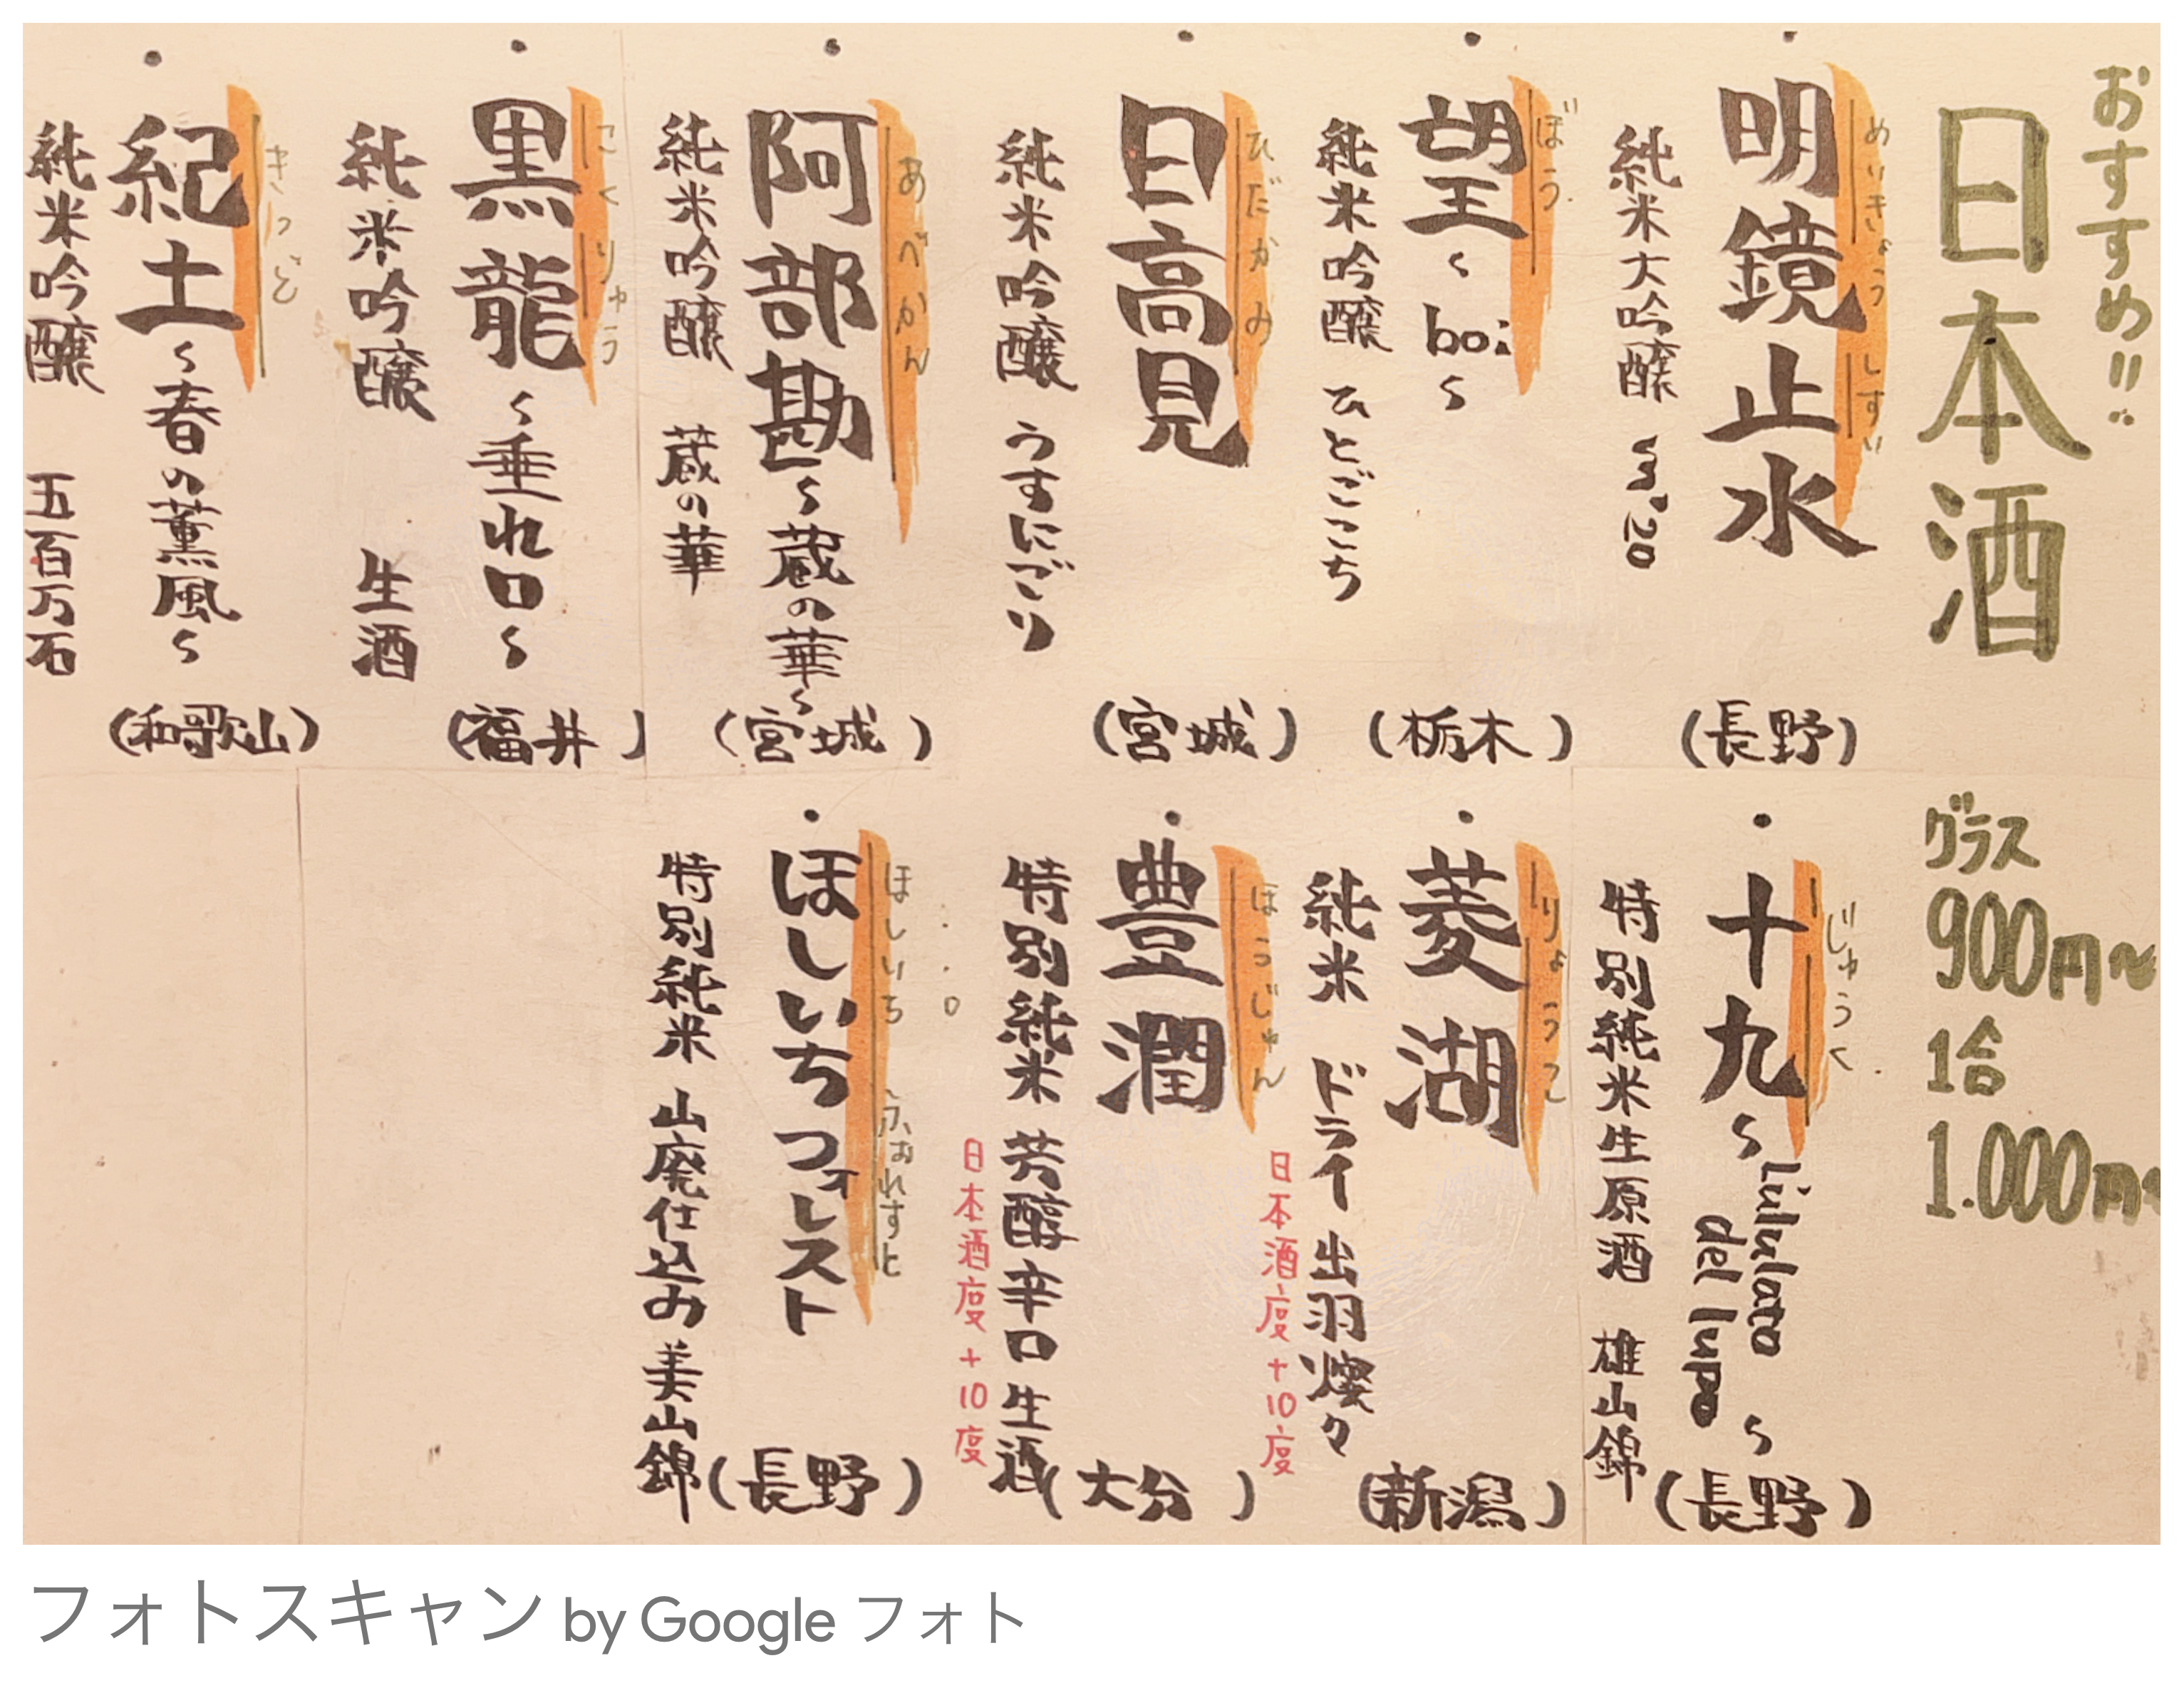 おすすめ!!
日本酒
めいきょうしすい
・明鏡止水
(長野)
純米大吟醸 m'20
ぼう
・望〜boi〜
(栃木)
純米吟醸 ひとごこち
ひだかみ
・日高見
(宮城)
純米吟醸 うすにごり
あべかん
・阿部勘〜蔵の華〜
(宮城)
純米吟醸 蔵の華
こくりゅう
・黒龍〜垂れ口〜
(福井)
純米吟醸 生酒
きっど
・紀土〜春の薫風〜
(和歌山)
純米吟醸 五百万石
グラス
900円〜
1合
1.000円〜
じゅうく
・十九〜L'ululato del lupo〜
(長野)
特別純米生原酒 雄山錦
りょうこ
・菱湖
(新潟)
純米 ドライ 出羽燦々
日本酒度+10度
ほうじゅん
・豊潤
(大分)
特別純米 芳醇辛口 生酒
日本酒度+10度
ほしいち ふぉれすと
・ほしいちフォレスト
(長野)
特別純米 山廃仕込み 美山錦
フォトスキャン by Google フォト